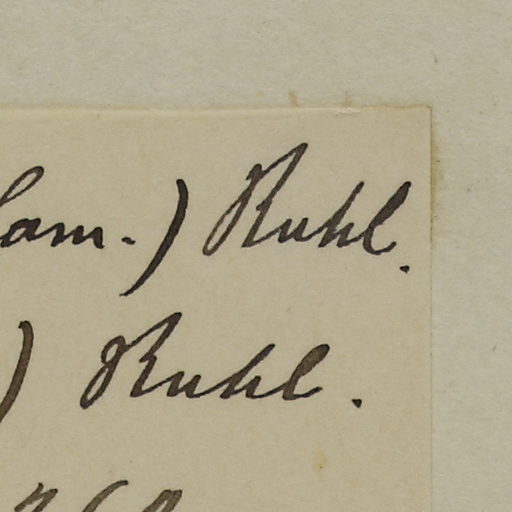 Lam.) Kuhl.
) Kuhl.